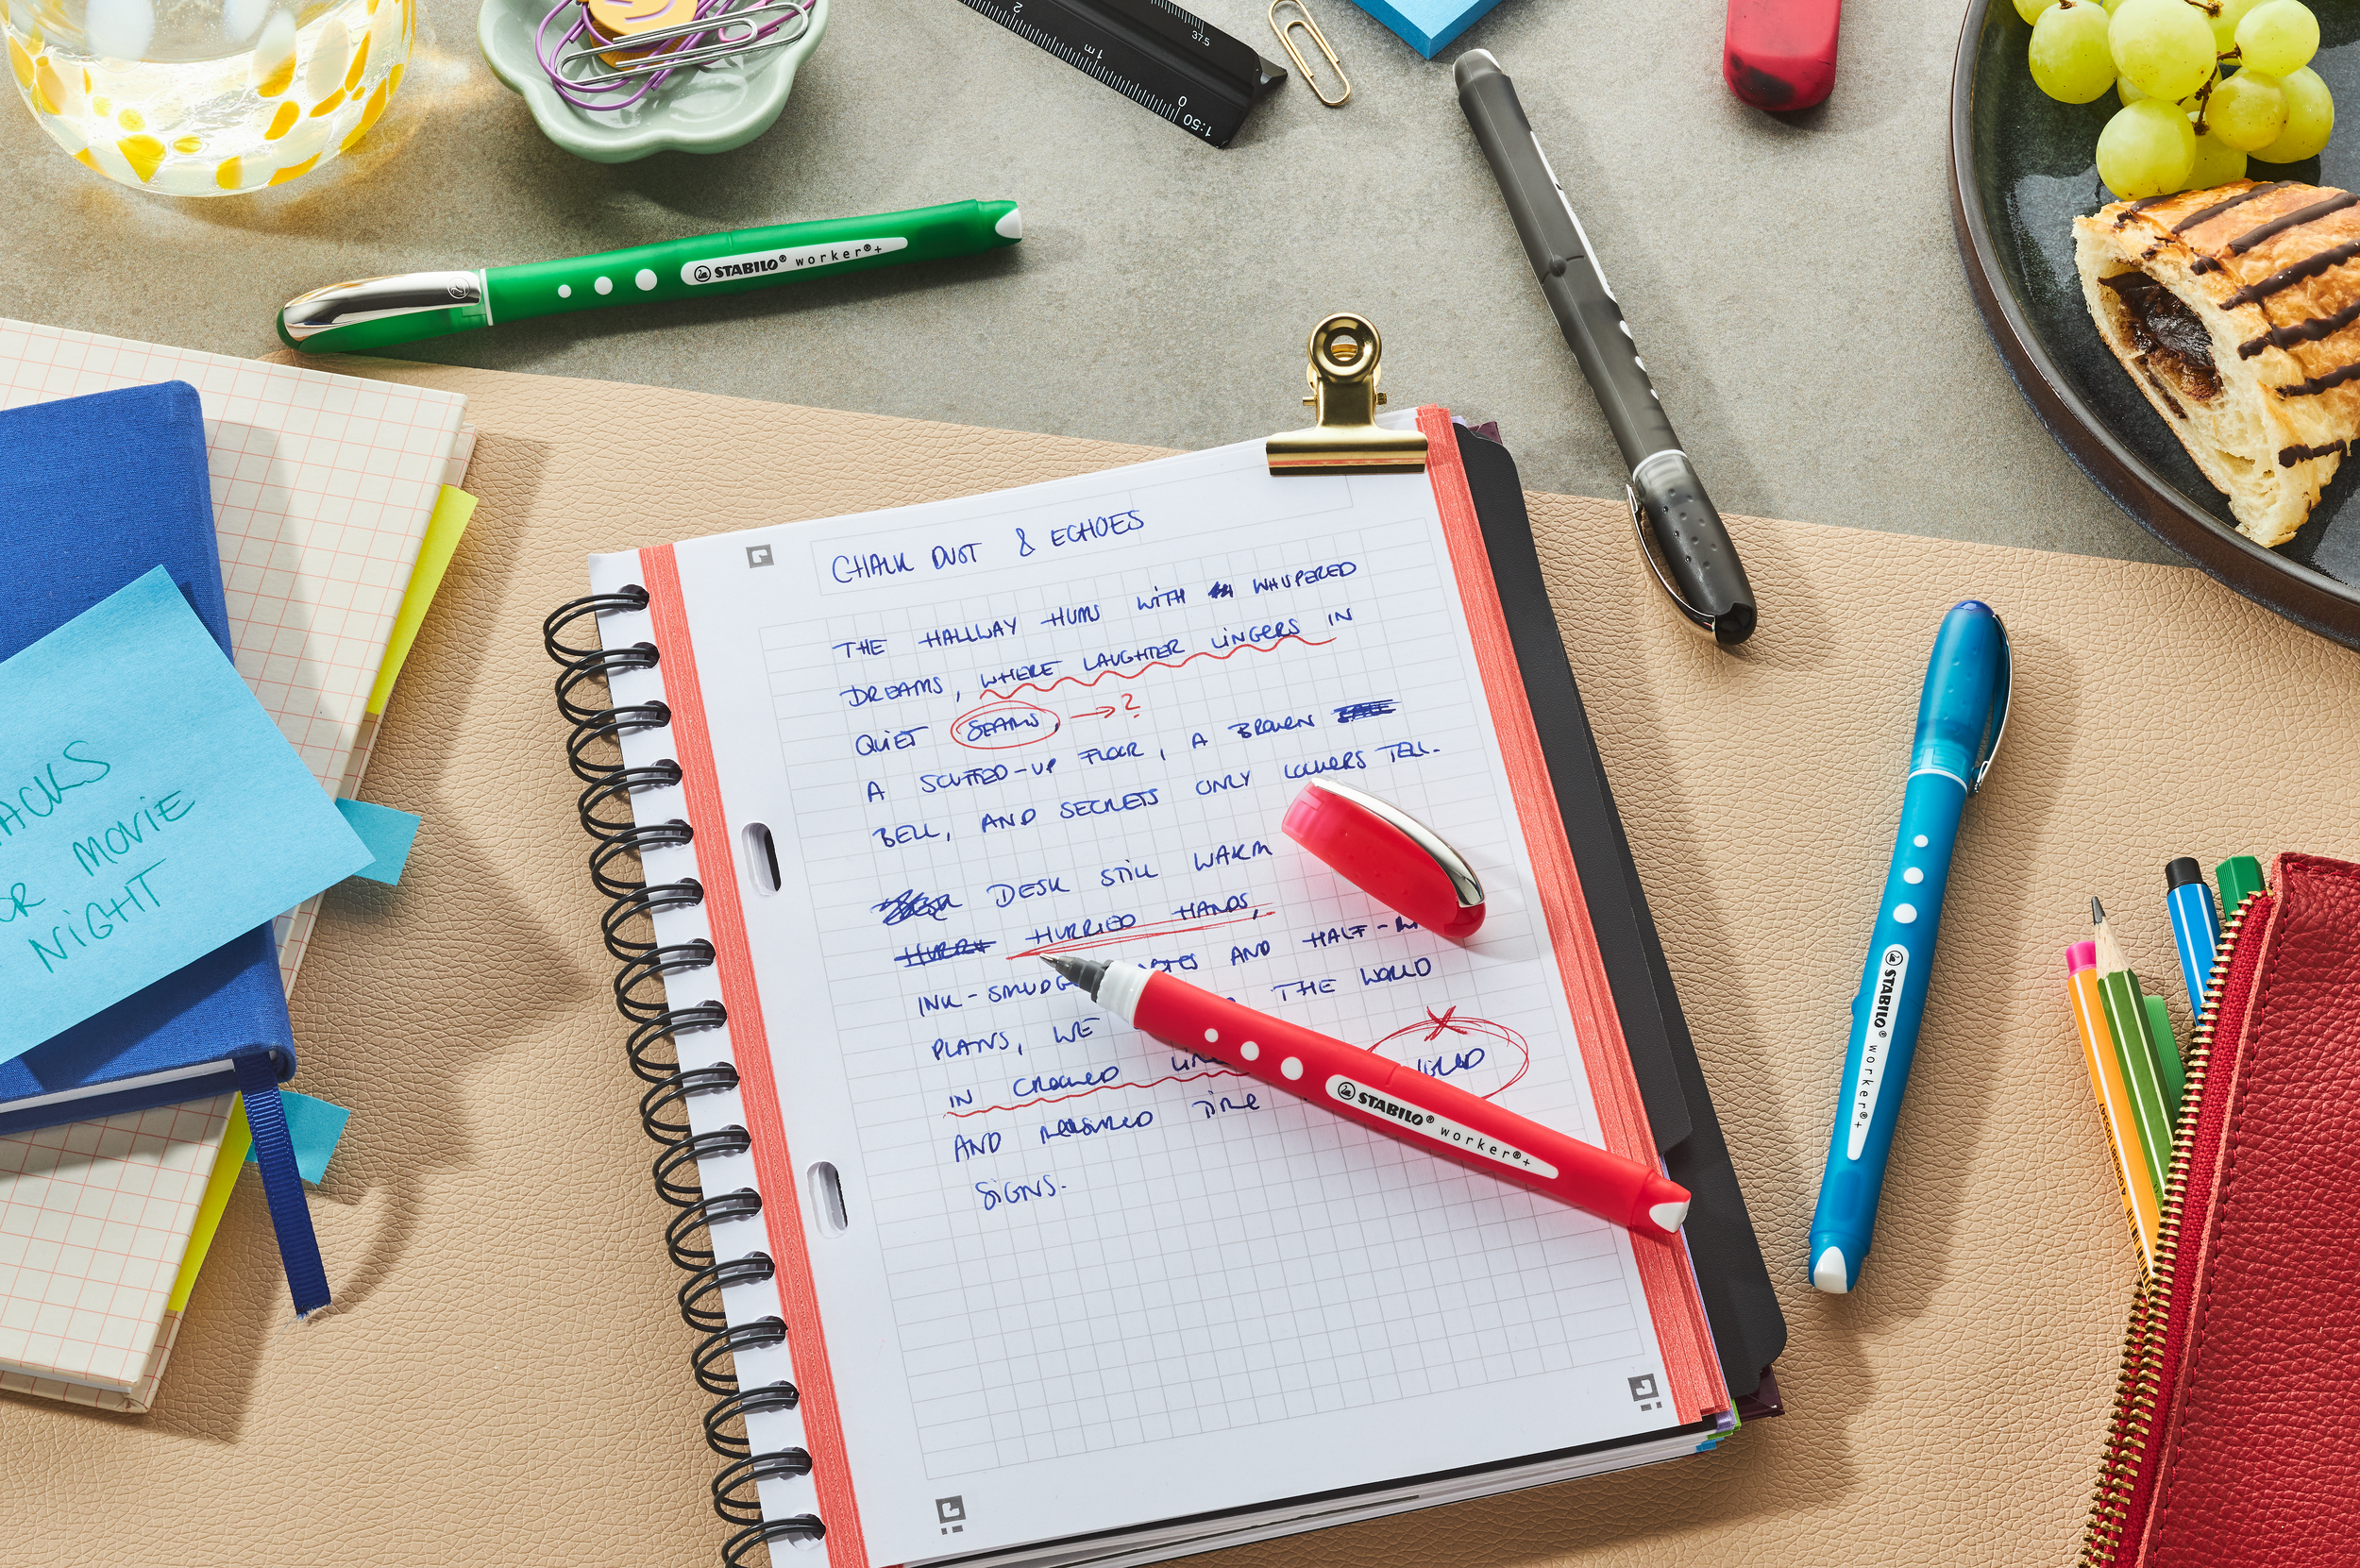 2
1 m
0
37.5
1:50
STABILO® worker®+
CHALK DUST & ECHOES
THE HALLWAY HUMS WITH WHISPERED
DREAMS, WHERE LAUGHTER LINGERS IN
QUIET SEAMS, → ?
A SCUFFED-UP FLOOR, A BROKEN
BELL, AND SECRETS ONLY LOCKERS TELL.
DESK STILL WARM
HURRIED HANDS,
INK-SMUDG AND HALF-
PLANS, WE THE WORLD
IN CROOKED
AND MEASURED TIME
SIGNS.
ACKS
OR MOVIE
NIGHT
STABILO® worker®+
STABILO® worker®+